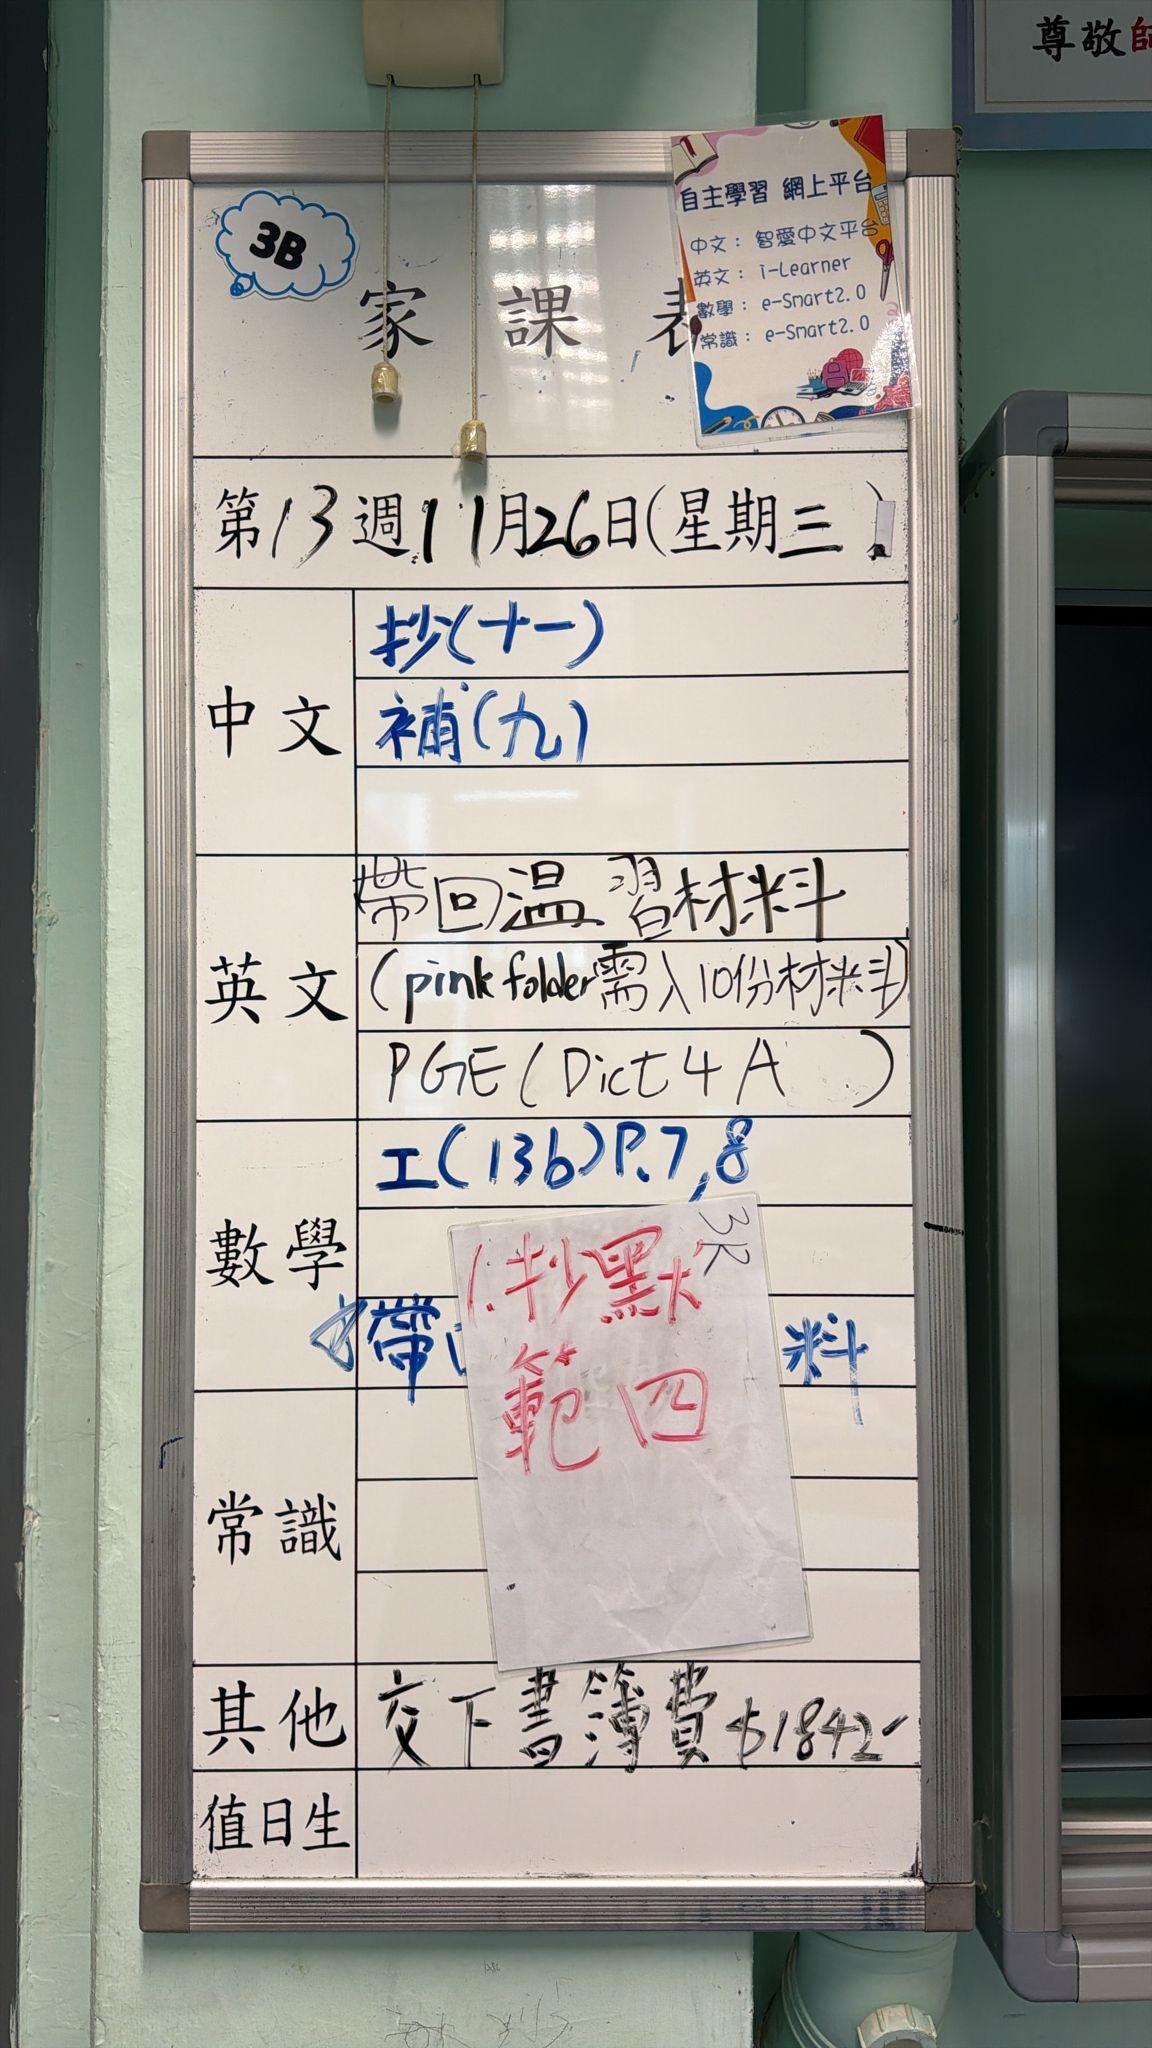 尊敬師
3B
家課表
自主學習 網上平台
中文： 智愛中文平台
英文： i-Learner
數學： e-Smart2.0
常識： e-Smart2.0
第13週11月26日(星期三)
中文
抄(十一)
補(九)
英文
帶回溫習材料
(pink folder需入10份材料)
PGE(Dict 4A )
數學
工(13b)P.7,8
帶 料
3R
1.抄默
範四
常識
其他
交下書簿費$1842
值日生